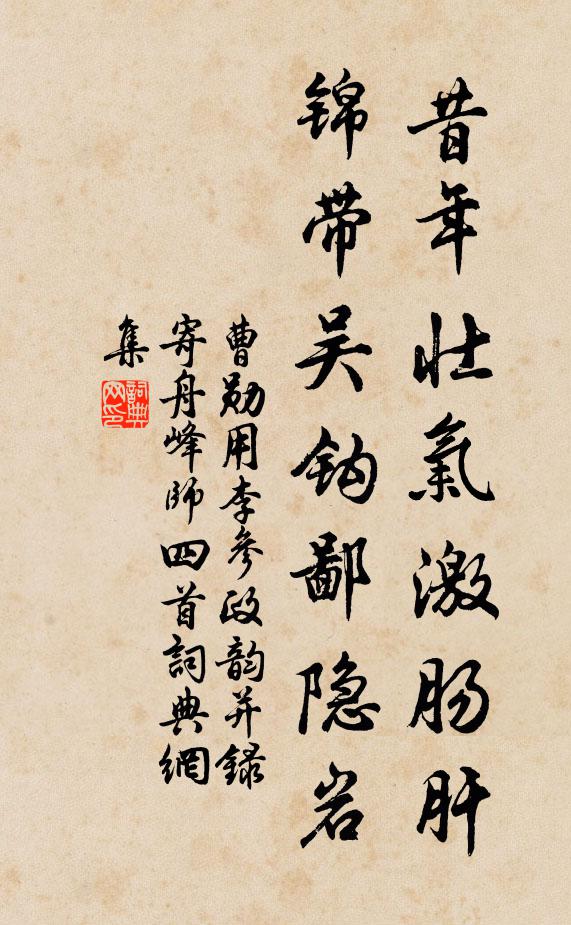 昔年壮氣激肠肝
锦带吴钩鄙隐岩
曹勋用李參政韵并録
寄舟峰師四首詞典網
集
詞典
网印